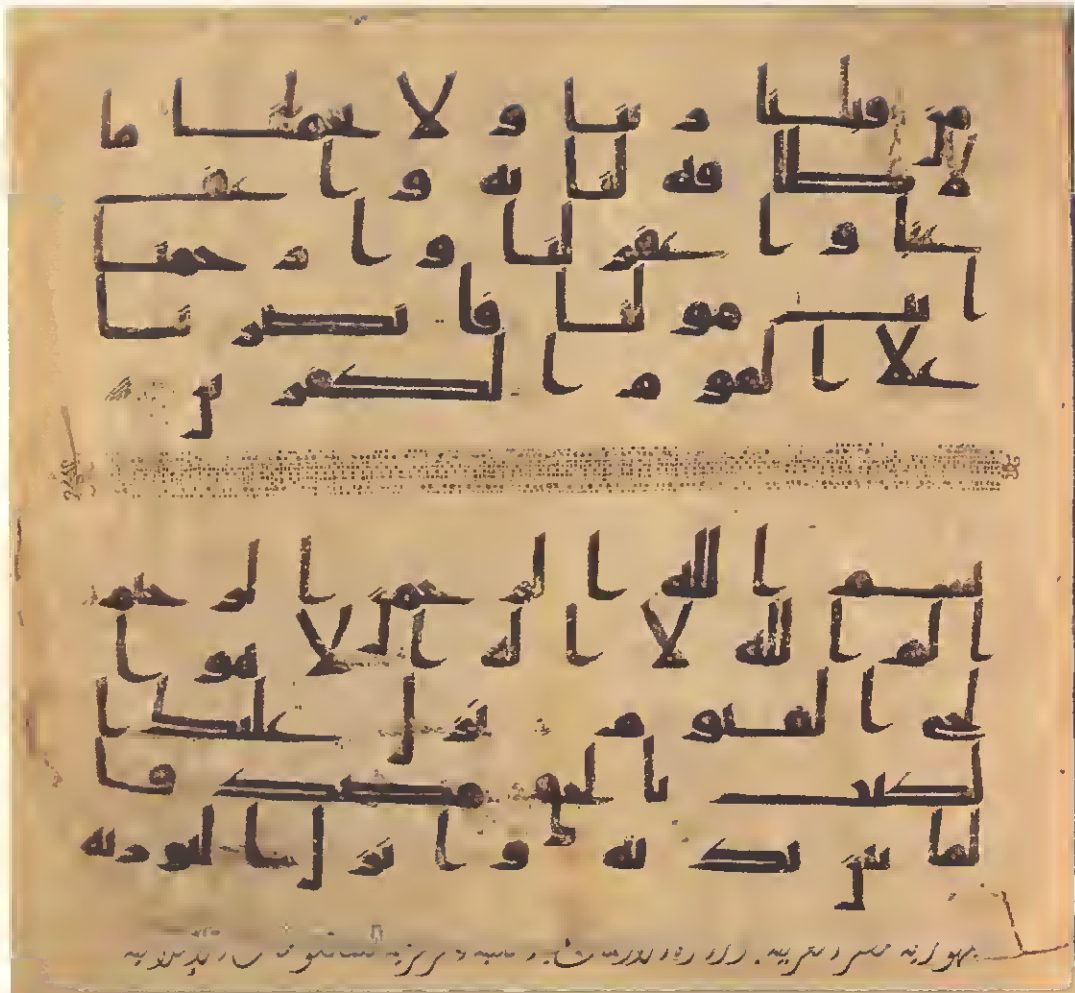 من قبلنا ربنا و لا تحملنا ما
لا طاقه لنا به و اعف
عنا و اغفر لنا و ارحمنا
انت مولنا فانصرنا
علا القوم الكفرين
بسم الله الرحمن الرحيم
الم الله لا اله الا هو ا
لحي القيوم نزل عليك ا
لكتب بالحق مصدقا
لما بين يديه و انزل التوريه